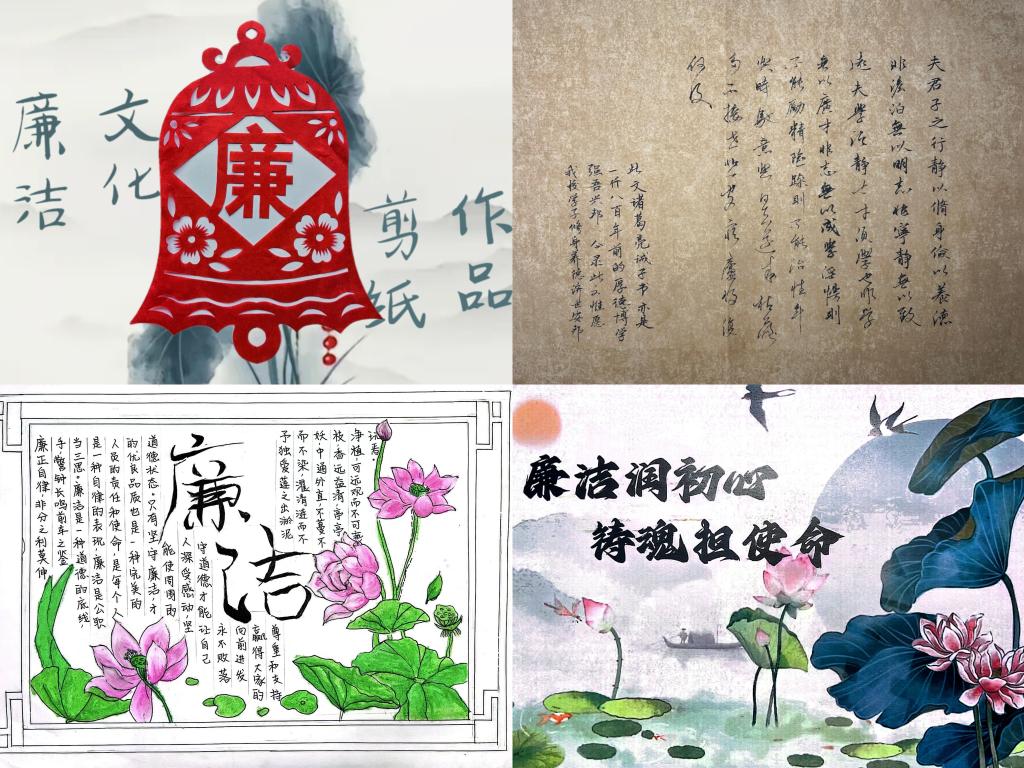 廉洁
文化
剪纸
作品
廉
夫君子之行靜以脩身儉以養德
非澹泊無以明志非寧靜無以致
遠夫學須靜也才須學也非學
無以廣才非志無以成學淫慢則
不能勵精險躁則不能治性年
與時馳意與日去遂成枯落
多不接世悲守窮廬將復
何及
此文诸葛亮诫子书亦是
一仟八百年前的厚德博学
强吾兴邦 公录此文惟愿
我校学子修身养德济世安邦
廉洁
予独爱莲之出淤泥
而不染,濯清涟而不
妖,中通外直,不蔓不
枝,香远益清,亭亭
净植,可远观而不可亵
玩焉。
廉正自律,非分之利莫伸
手,警钟长鸣前车之鉴
当三思。廉洁是一种道德的底线,
是一种自律的表现,廉洁是公职
人员的责任和使命,是每个人
的优良品质也是一种完美的
道德状态。只有坚守廉洁,才
能使周围的
人深受感动,坚
守道德才能
让自己
永不败落
向前进发
赢得大家的
尊重和支持
廉洁润初心
铸魂担使命